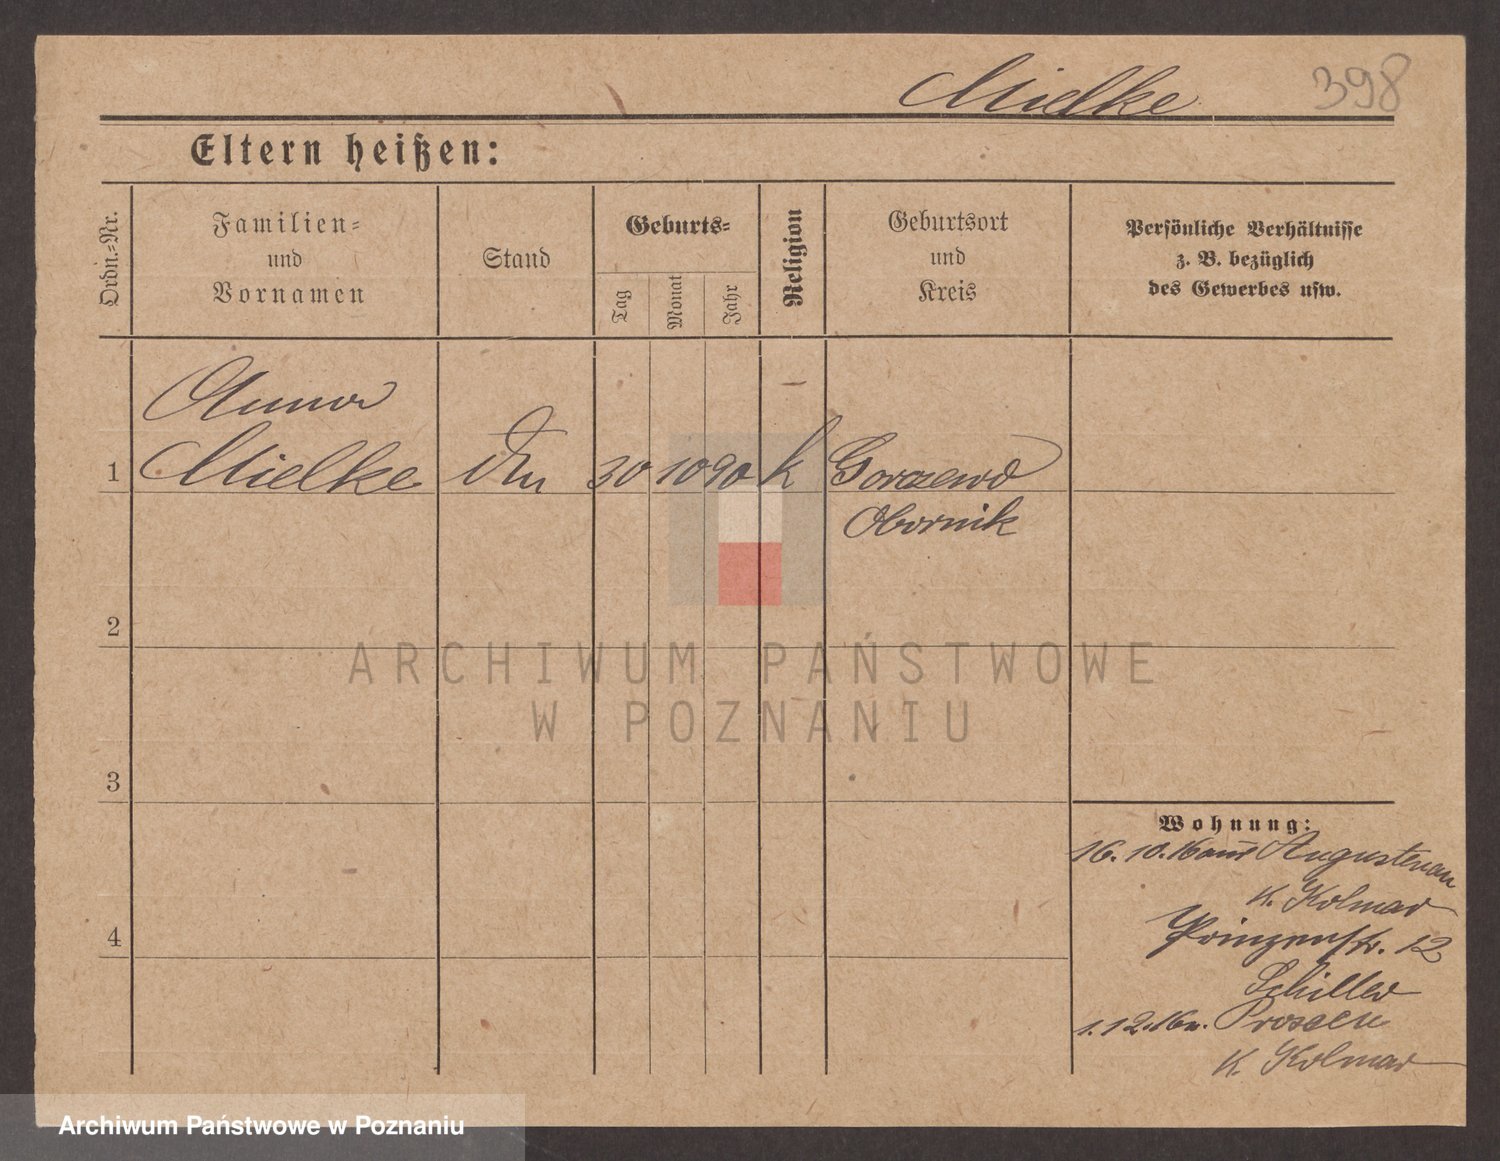 Mielke 398
Eltern heißen:
Ordn.-Nr.
Familien-
und
Vornamen
Stand
Geburts-
Tag
Monat
Jahr
Religion
Geburtsort
und
Kreis
Persönliche Verhältnisse
z. B. bezüglich
des Gewerbes usw.
Anna
1 Mielke 30 10 90 k Gorzewo
Obornik
2
3
4
Wohnung:
16. 10. 16 aus Augustenau
K. Kolmar
Prinzenstr. 12
Schiller
1. 12. 16 n. Prossen
K. Kolmar
ARCHIWUM PAŃSTWOWE
W POZNANIU
Archiwum Państwowe w Poznaniu